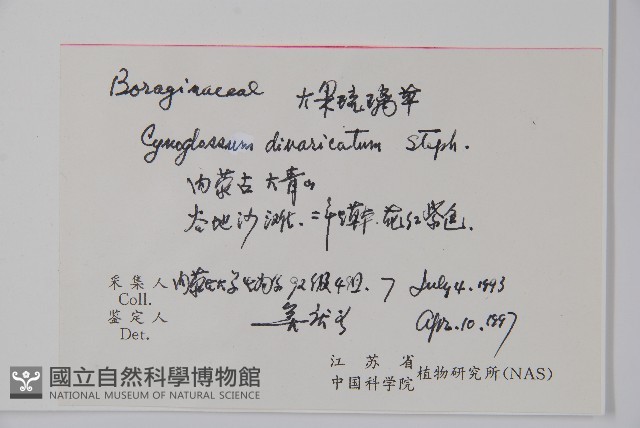 Boraginaceae 大果琉璃草
Cynoglossum divaricatum Steph.
内蒙古 大青山
谷地沙滩. 二年生草本. 花红紫色.
采集人 内蒙古大学生物系92级4组. 7 July 4. 1993
Coll.
鉴定人 Apr. 10. 1997
Det.
江苏省
中国科学院 植物研究所(NAS)
國立自然科學博物館
NATIONAL MUSEUM OF NATURAL SCIENCE